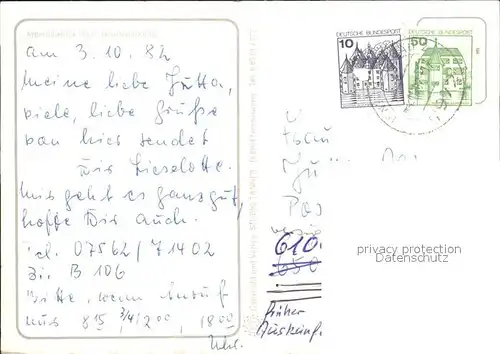 am 3.10.82
Meine liebe Jutta,
viele, liebe Grüße
von hier sendet
Dir Lieselotte.
Mir geht es ganz gut,
hoffe Dir auch.
Tel. 07562/71402
Zi. B 106
Bitte, wenn Anruf
nur 8 15, 3/4 2 00, 18 00
Uhr.
DEUTSCHE BUNDESPOST
10
DEUTSCHE BUNDESPOST
50
E
Frau
610.
650
früher
privacy protection
Datenschutz